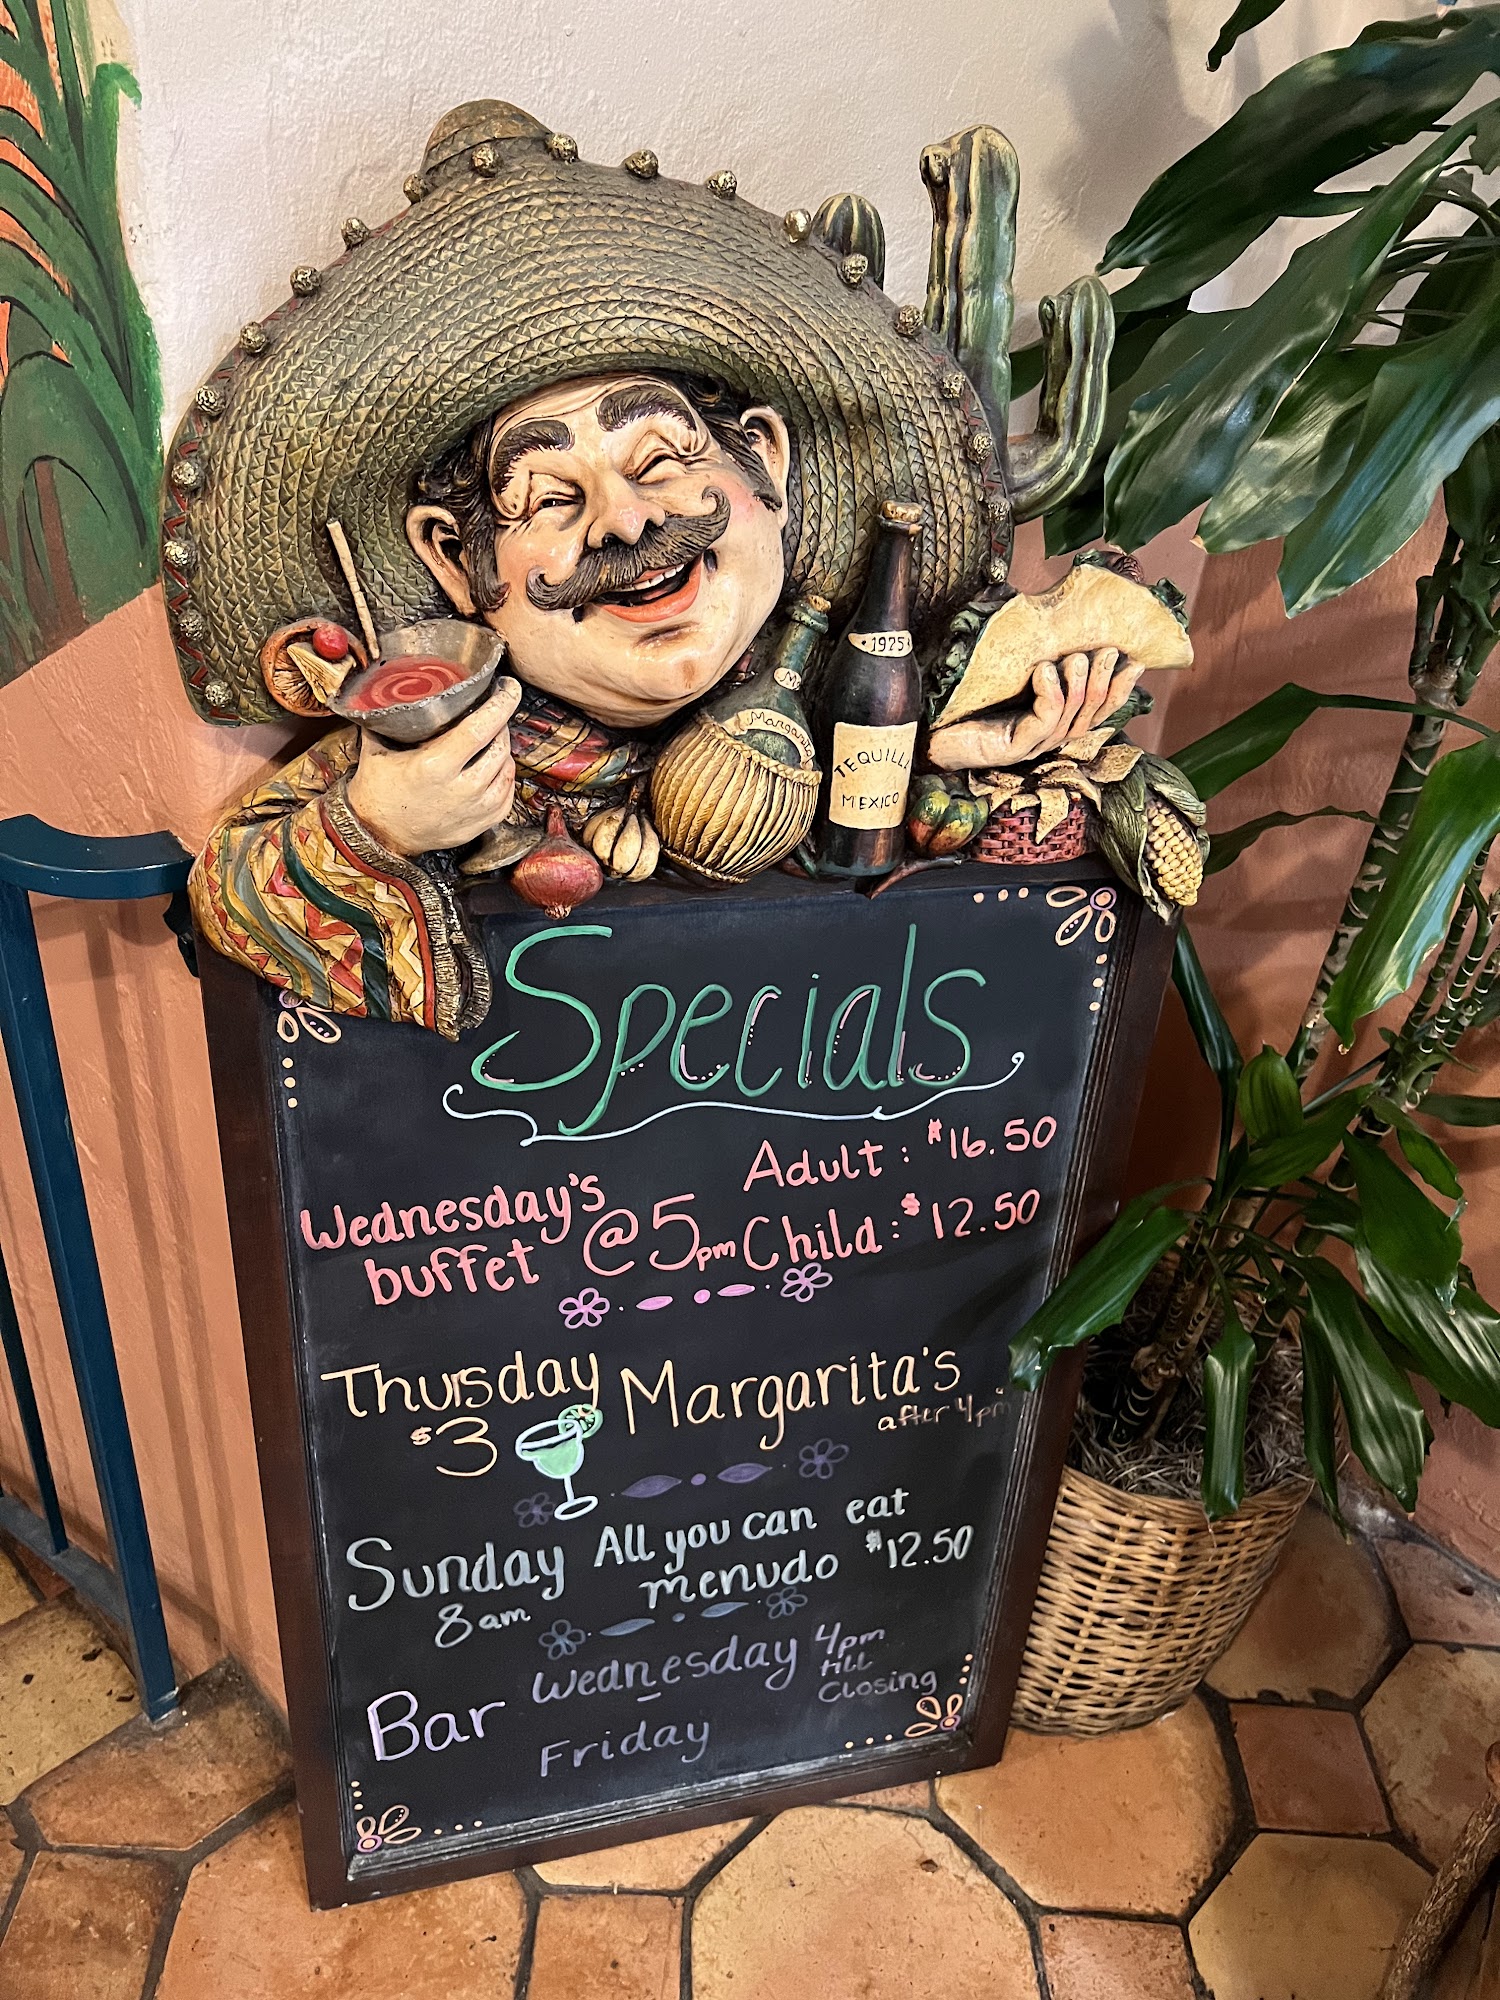 1975
Margarita
TEQUILL
MEXICO
Specials
Wednesday's
buffet @ 5pm
Adult: $16.50
Child: $12.50
Thursday
$3 Margarita's
after 4pm
Sunday
8am
All you can eat
menudo $12.50
Bar Wednesday 4pm
till
Closing
Friday